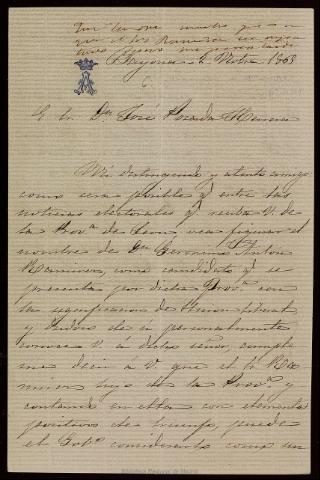 Bayona 2 Octre 1863
E Sr Dn José Posada Herrera
Mi distinguido y atento amigo:
como sera posible q entre las
noticias electorales q reciba V. de
la Prova de Leon, vea figurar el
nombre de Dn Geronimo Anton
Ramirez, como candidato q se
presenta por dicha Prova con
la significacion de Union liberal
y dudo de si personalmente
conoce V. á dicho señor, cumple
me decir á V. que el Sr Ra
mirez hijo de la Prova y
contando en ella con elementos
positivos de triunfo, puede
el Gobo considerarlo como un
Biblioteca Regional de Madrid